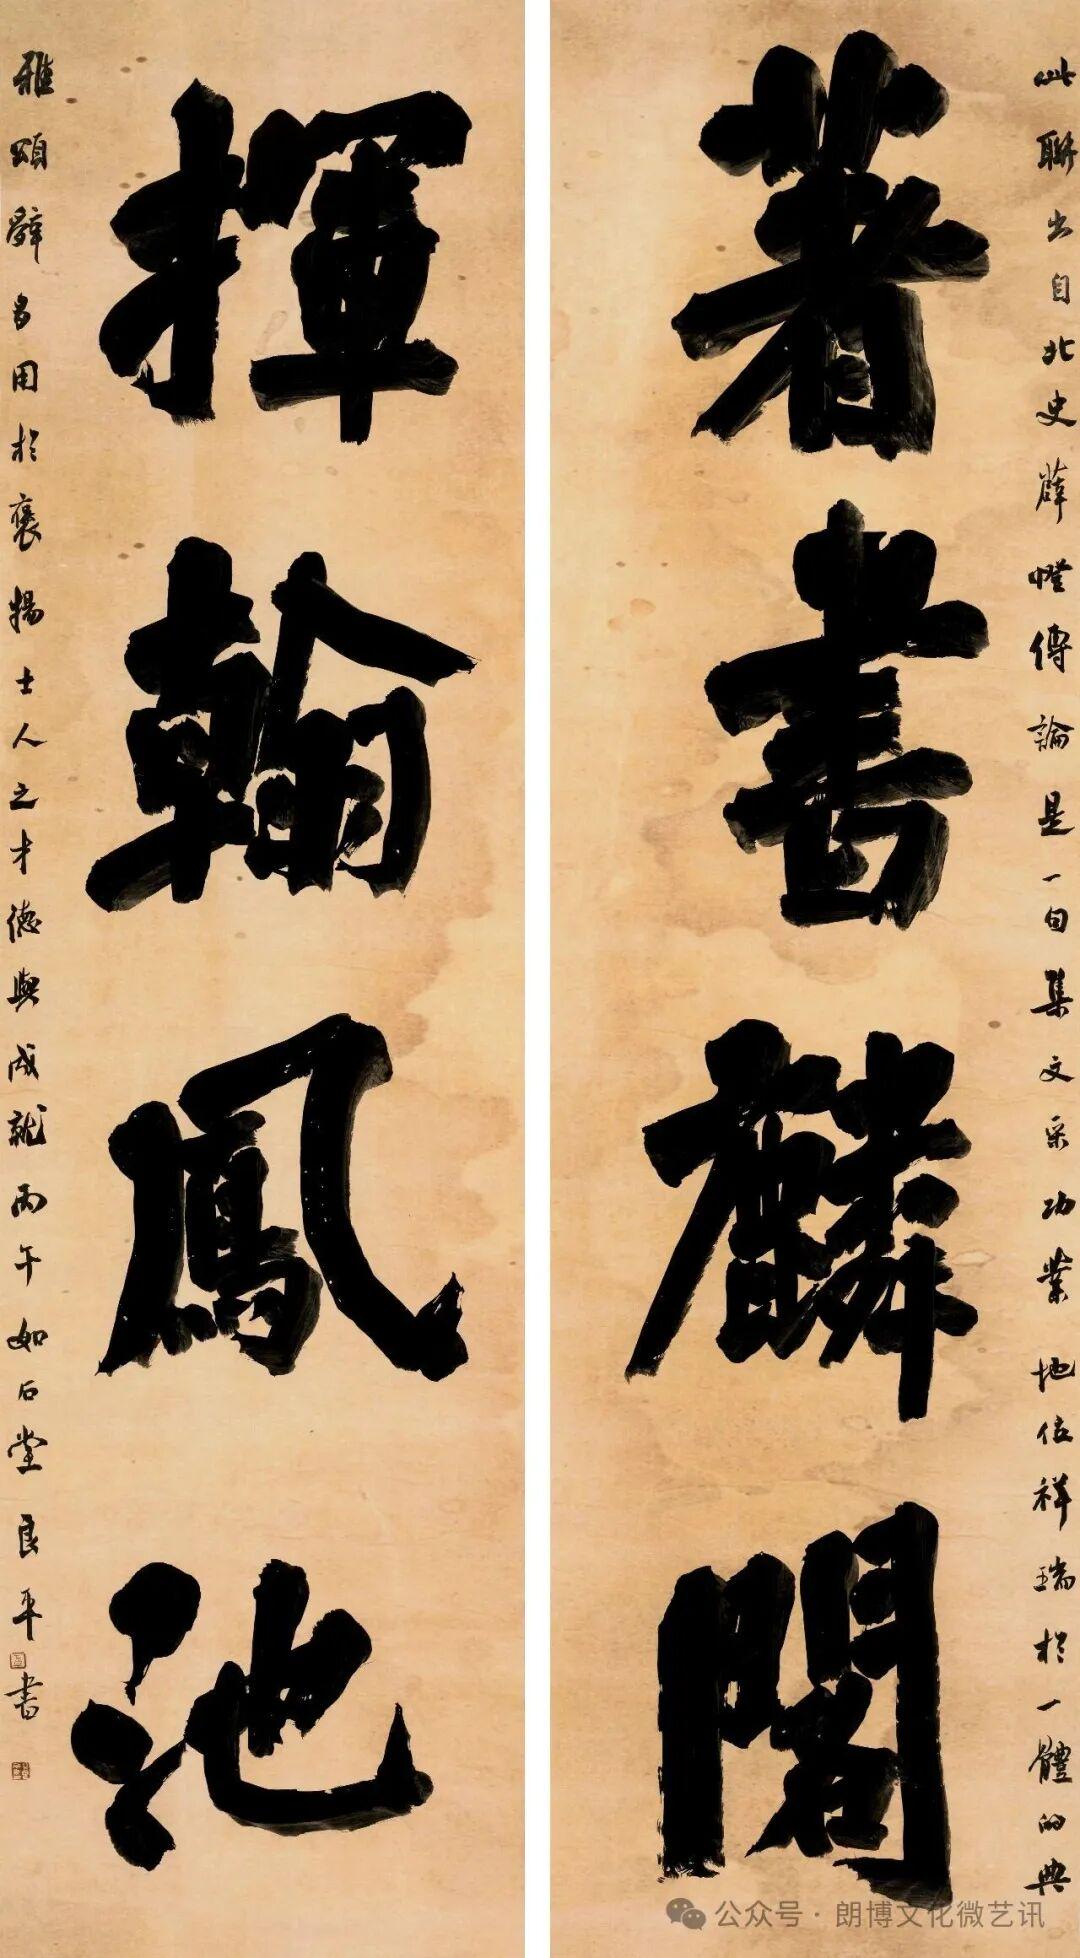 著書麟閣
此聯出自北史薛憕傳論是一句集文采功業地位祥瑞於一體的典
揮翰鳳池
雅頌辭多用於褒揚士人之才德與成就丙午如石堂良平書
公众号·朗博文化微艺讯